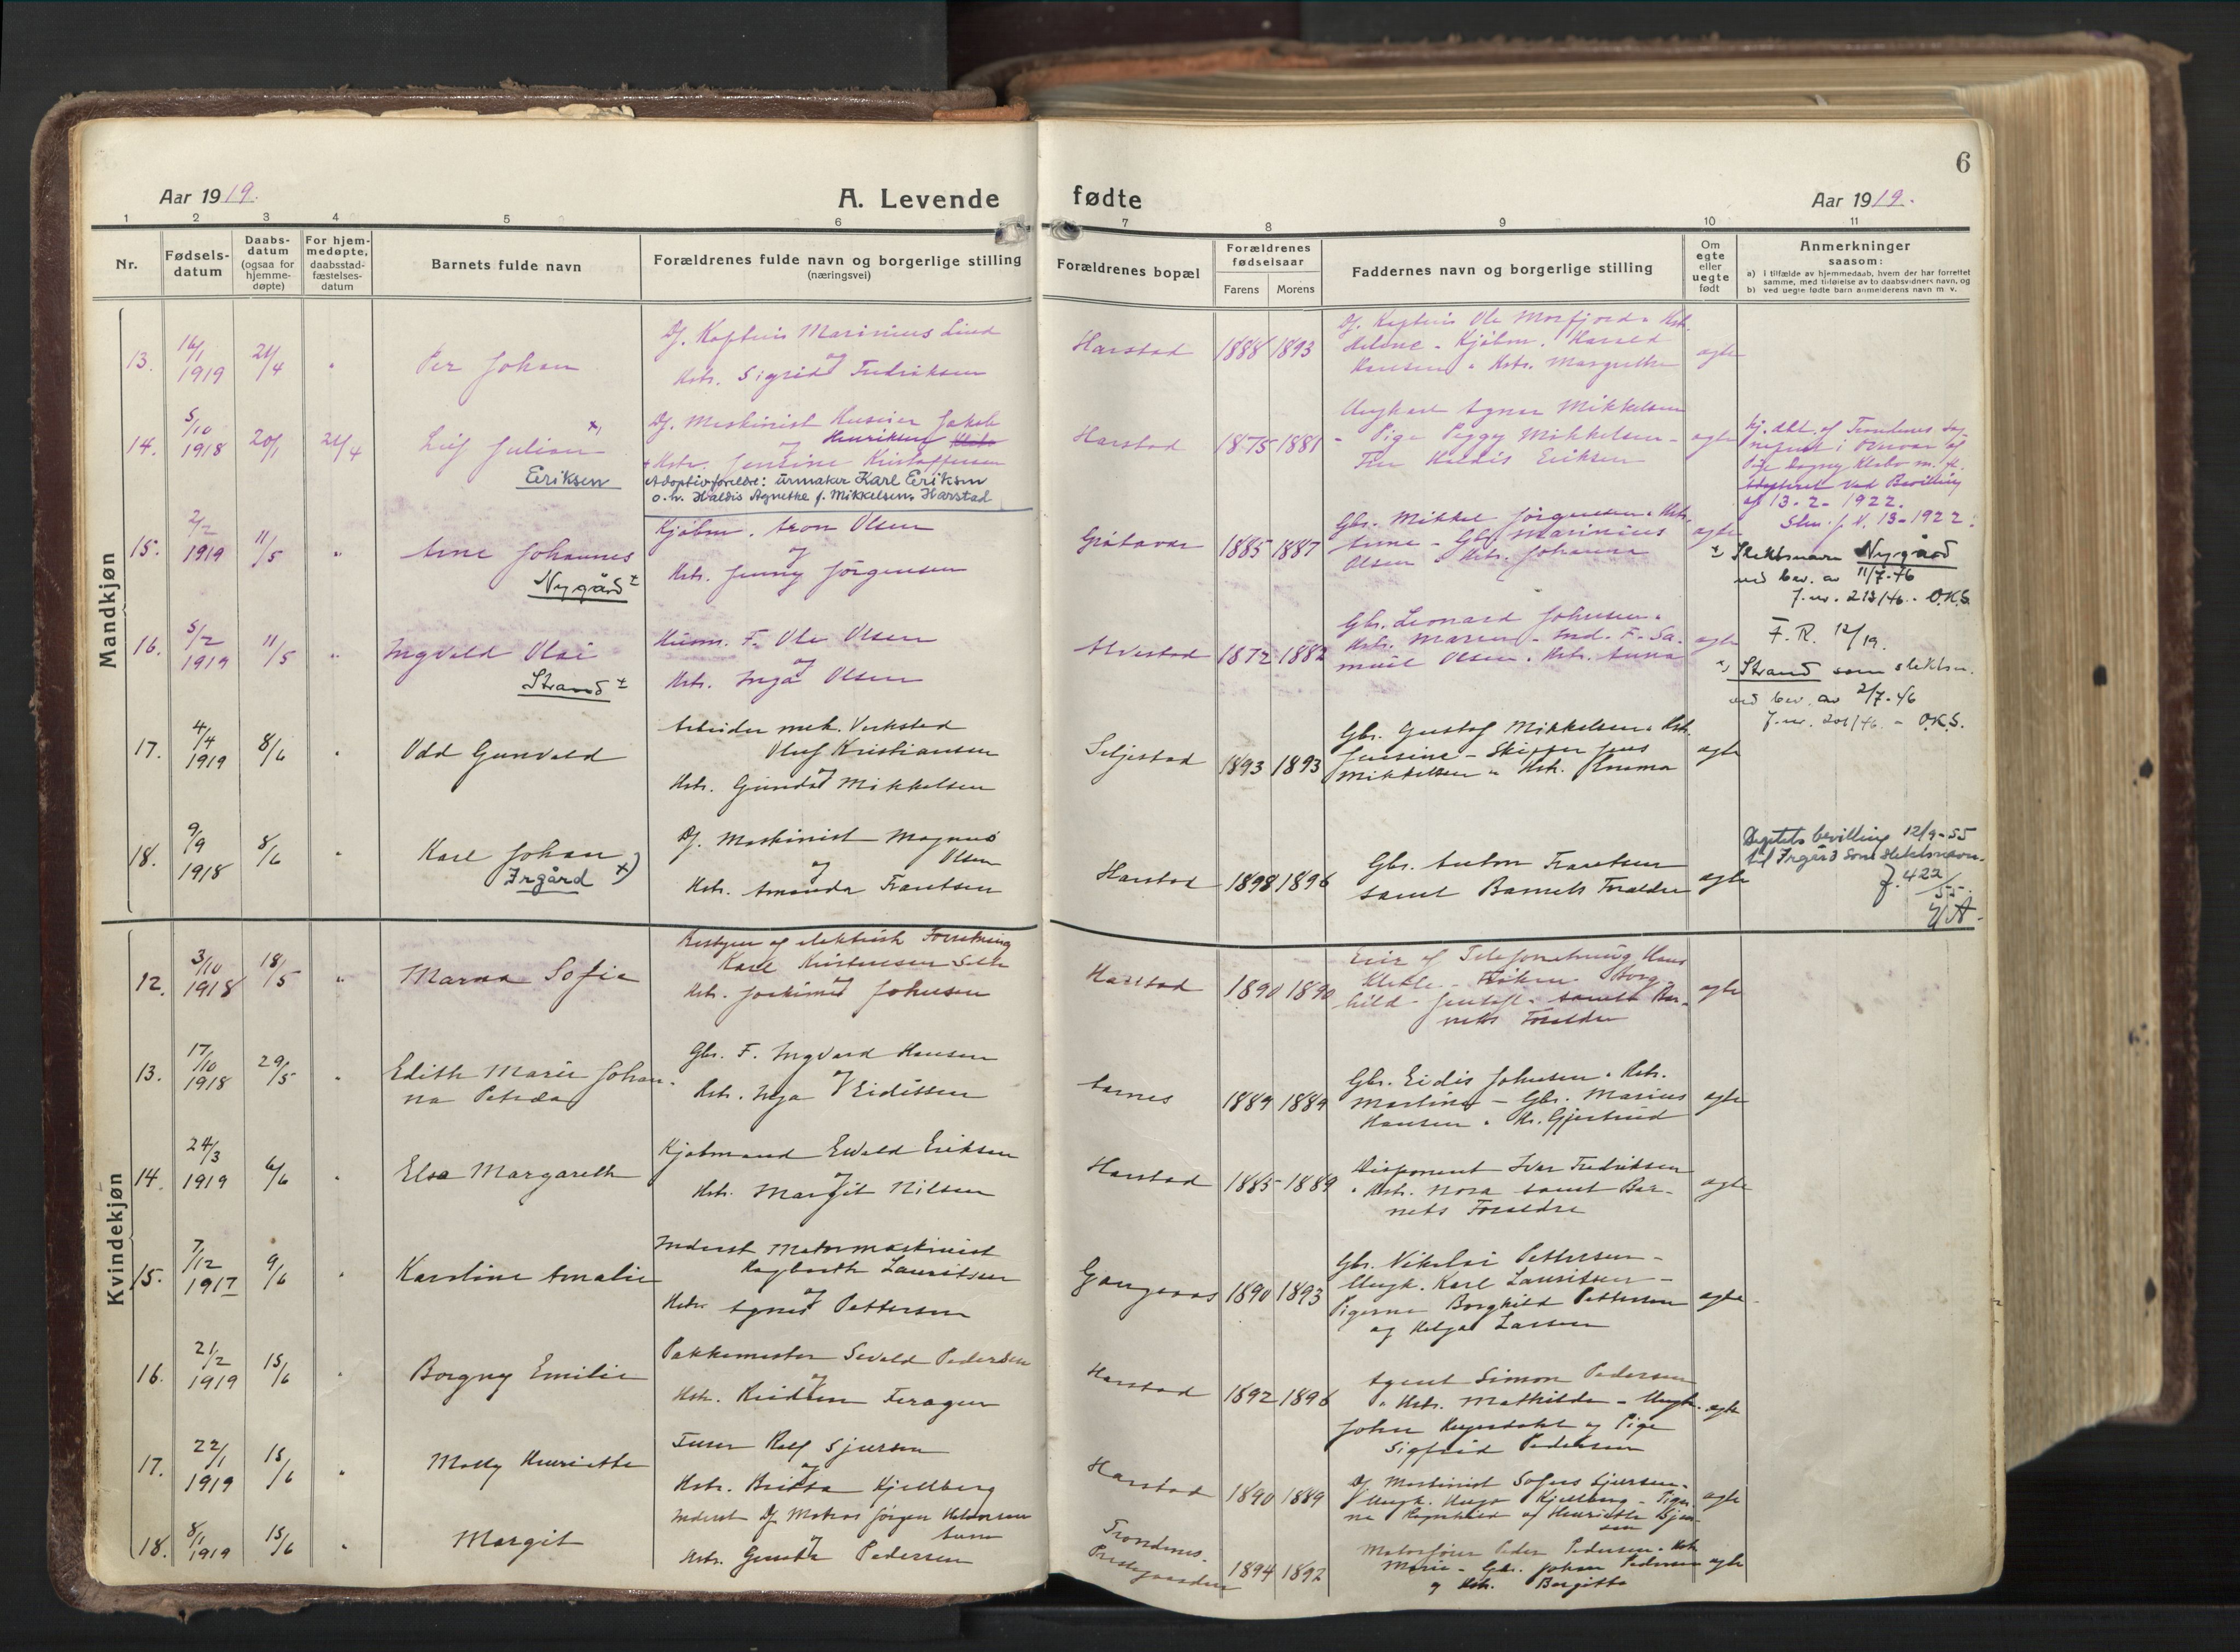 6
Aar 1919.
A. Levende fødte
Aar 1919.
1 2 3 4 5 6 7 8 9 10 11
Nr.
Fødselsdatum
Daabsdatum (ogsaa for hjemmedøpte)
For hjemmedøpte, daabsstadfæstelsesdatum
Barnets fulde navn
Forældrenes fulde navn og borgerlige stilling (næringsvei)
Forældrenes bopæl
Forældrenes fødselsaar
Farens
Morens
Faddernes navn og borgerlige stilling
Om egte eller uegte født
Anmerkninger saasom:
a) i tilfælde av hjemmedaab, hvem der har forrettet samme, med tilføielse av to daabsvidners navn, og
b) ved uegte fødte barn anmelderens navn m. v.
Mandkjøn
13. 16/1 1919 21/4 Per Johan
Df. Kaptein Marinius Lind
og
Hstr. Sigrid Fredriksen
Harstad 1888 1893
Df. Kaptein Ole Morfjord
Helene - Kjøbm. Harald
Hansen Hstr. Margrethe
egte
14. 5/10 1918 20/1 21/4 Leif Julian x)
Eriksen
Df. Maskinist Huseier Jakob
og Henriksen
Hstr. Jensine Kristoffersen
Adoptivforeldre: Urmaker Karl Eriksen
o. h. Haldis Agnethe f. Mikkelsen, Harstad
Harstad 1875 1881
Ungkarl Agnar Mikkelsen
- Pige Peggy Mikkelsen -
Fru Haldis Eriksen
egte
Adopteret ved Bevilling
af 13-2-1922.
15. 2/2 1919 11/5 Arne Johannes
Nygård ±
Kjøbm. Aron Olsen
og
Hstr. Jenny Jörgensen
1885 1887
Gbr. Mikkel Jörgensen Hstr.
Marinius
Olsen Hstr. Johanna
egte
± Slektsnavn Nygård
ved bev. av 11/7-46
J. nr. 213/46. O.K.S.
16. 5/2 1919 11/5 Ingvald Olai
Strand ±
Ole Olsen
og
Hstr. Inga Olsen
1872 1882
Gbr. Leonard Johnsen
Hstr. Maren - Ind. F. Sa-
muel Olsen Hstr. Anna
egte
F. R. 12/19.
Strand som slektsn.
ved bev. av 2/7-46
J. nr. 201/46 - O.K.S.
17. 4/4 1919 8/6 Odd Gunvald
Arbeider mek. Verksted
Oluf Kristiansen
og
Hstr. Gunda Mikkelsen
Seljestad 1893 1893
Gbr. Gustaf Mikkelsen Hstr.
Jensine - Skipper Jens
Mikkelsen Hstr. Emma
egte
18. 9/9 1918 8/6 Karl Johan
Irgård x)
Df. Maskinist Magnus
og Olsen
Hstr. Amanda Frantsen
Harstad 1898 1896
Gbr. Anton Frantsen
samt Barnets Forældre
egte
bevilling 12/9-55
til Irgård som slektsnavn.
J. 422/55.
Kvindekjøn
12. 3/10 1918 18/5 Marna Sofie
Bestyrer af elektrisk Forretning
Karl Kristensen
og
Hstr. Johnsen
Harstad 1890 1890
Hans
Borg-
hild samt Bar-
nets Forældre
egte
13. 17/10 1918 29/5 Edith Marie Johan-
na Petrea
Gbr. F. Ingvard Hansen
og
Hstr. Inga Eidissen
Aarnes 1889 1889
Gbr. Eidis Johnsen Hstr.
Martine - Gbr. Marius
Hansen Hstr. Gjertrud
egte
14. 24/3 1919 6/6 Elsa Margareth
Kjøbmand Evald Eriksen
og
Hstr. Margit Nilsen
Harstad 1885 1889
Disponent Ivar Fredriksen
Hstr. Nora samt Bar-
nets Forældre
egte
15. 7/12 1917 9/6 Karoline Amalie
Inderst Motormaskinist
Hagbarth Lauritsen
og
Hstr. Agnes Pettersen
Gangsaas 1890 1893
Gbr. Nikolai Pettersen -
Ungk. Karl Lauritsen -
Pigerne Borghild Pettersen
og Helga Larsen
egte
16. 21/2 1919 15/6 Borgny Emilie
Pakkemester Sevald Pedersen
og
Hstr. Feragen
Harstad 1892 1896
Agent Simon Pedersen
Hstr. Mathilde - Ungk.
John og Pige
Sigfrid Pedersen
egte
17. 22/1 1919 15/6 Molly Henriette
Rolf Sjursen
og
Hstr. Britta Kjellberg
Harstad 1890 1889
Df. Maskinist Sofus Sjursen
Ungk. Hugo Kjellberg - Piger-
ne Ragnhild og Henriette Sjur-
sen
egte
18. 8/1 1919 15/6 Margit
Inderst Df. Matros Jørgen
og
Hstr. Pedersen
Trondenes
Prestegaarden 1894 1892
Peder Pedersen Hstr.
Marie - Gbr. Johan Pedersen
og Hstr. Bergitte
egte